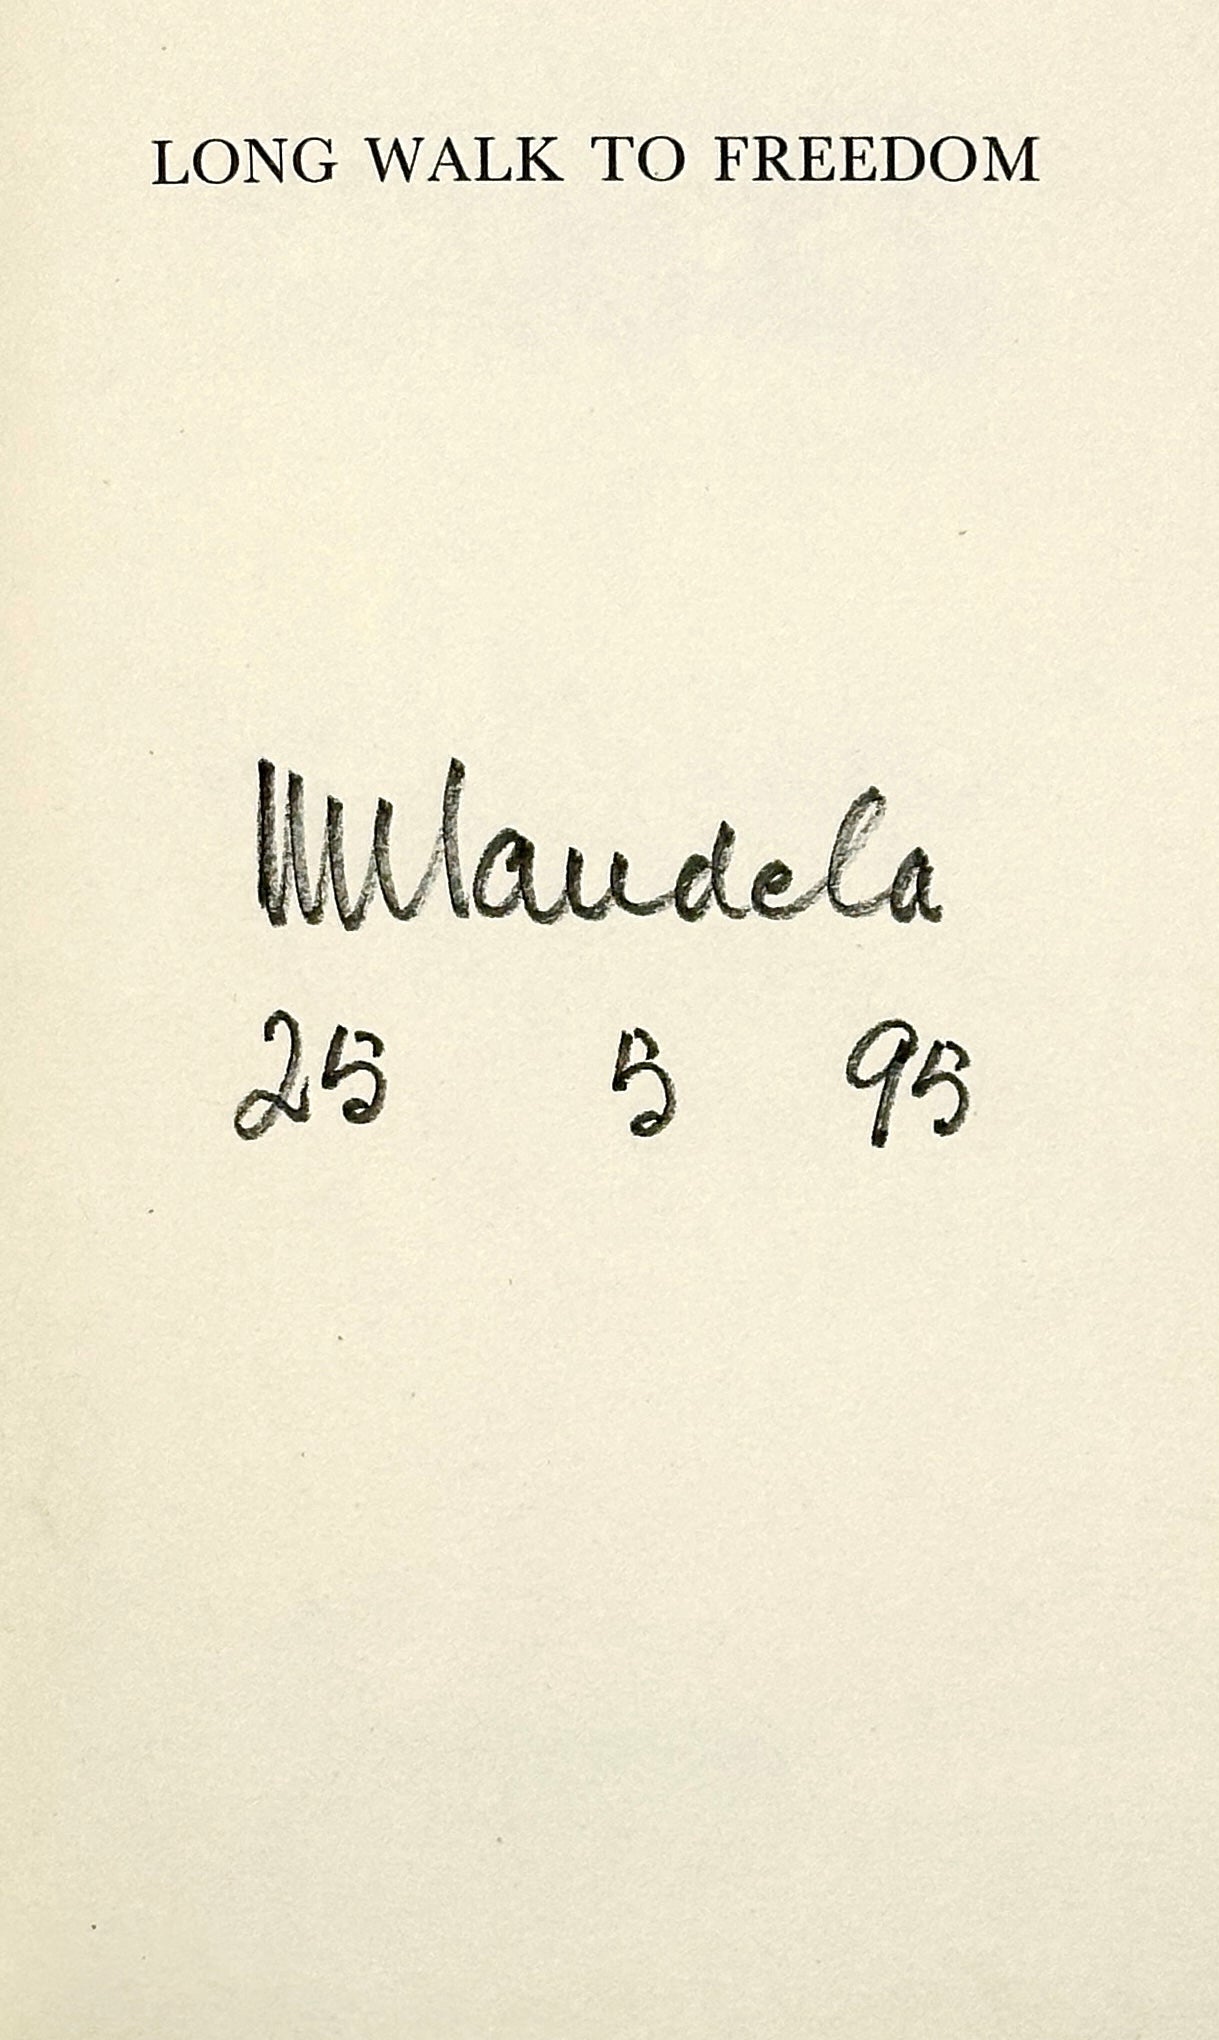 LONG WALK TO FREEDOM
NMandela
25 5 95